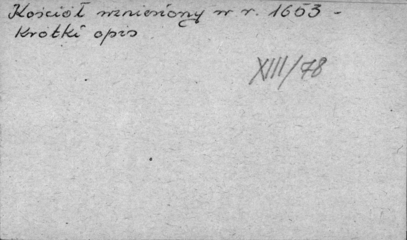 Kościół wzniesiony w r. 1603 -
krótki opis
XIII/78